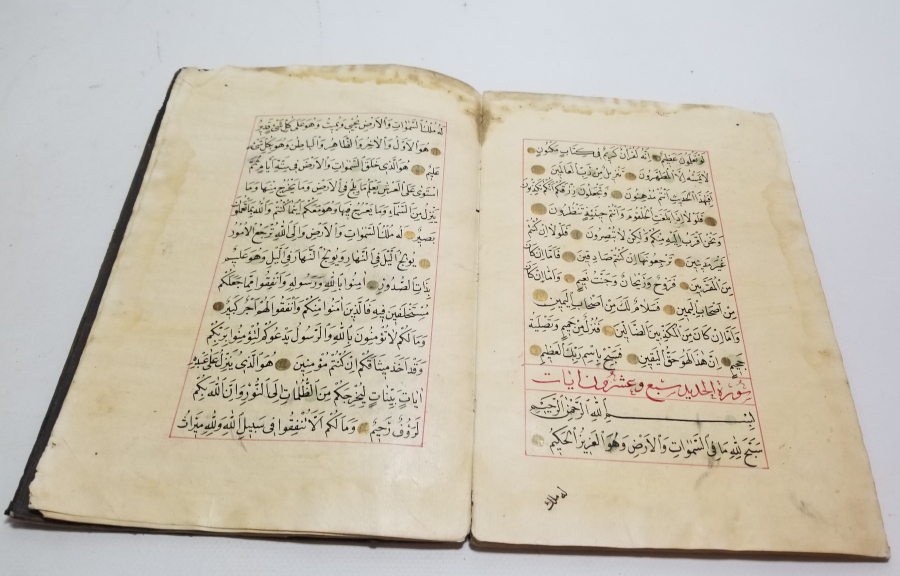 لَوْ تَعْلَمُونَ عَظِيمٌ اِنَّهُ لَقُرْاٰنٌ كَرِيمٌ فِى كِتَابٍ مَكْنُونٍ
لَا يَمَسُّهُ اِلَّا الْمُطَهَّرُونَ تَنْزِيلٌ مِنْ رَبِّ الْعَالَمِينَ
اَفَبِهٰذَا الْحَدِيثِ اَنْتُمْ مُدْهِنُونَ وَتَجْعَلُونَ رِزْقَكُمْ اَنَّكُمْ تُكَذِّبُونَ
فَلَوْلَا اِذَا بَلَغَتِ الْحُلْقُومَ وَاَنْتُمْ حِينَئِذٍ تَنْظُرُونَ
وَنَحْنُ اَقْرَبُ اِلَيْهِ مِنْكُمْ وَلٰكِنْ لَا تُبْصِرُونَ فَلَوْلَا اِنْ كُنْتُمْ
غَيْرَ مَدِينِينَ تَرْجِعُونَهَا اِنْ كُنْتُمْ صَادِقِينَ فَاَمَّا اِنْ كَانَ
مِنَ الْمُقَرَّبِينَ فَرَوْحٌ وَرَيْحَانٌ وَجَنَّتُ نَعِيمٍ وَاَمَّا اِنْ كَانَ
مِنْ اَصْحَابِ الْيَمِينِ فَسَلَامٌ لَكَ مِنْ اَصْحَابِ الْيَمِينِ
وَاَمَّا اِنْ كَانَ مِنَ الْمُكَذِّبِينَ الضَّالِّينَ فَنُزُلٌ مِنْ حَمِيمٍ وَتَصْلِيَةُ
جَحِيمٍ اِنَّ هٰذَا لَهُوَ حَقُّ الْيَقِينِ فَسَبِّحْ بِاسْمِ رَبِّكَ الْعَظِيمِ
سُورَةُ الْحَدِيدِ سَبْعٌ وَعِشْرُونَ اٰيَات
بِسْمِ اللّٰهِ الرَّحْمٰنِ الرَّحِيمِ
سَبَّحَ لِلّٰهِ مَا فِى السَّمٰوَاتِ وَالْاَرْضِ وَهُوَ الْعَزِيزُ الْحَكِيمُ
له ملك
لَهُ مُلْكُ السَّمٰوَاتِ وَالْاَرْضِ يُحْيِى وَيُمِيتُ وَهُوَ عَلٰى كُلِّ شَىْءٍ قَدِيرٌ
هُوَ الْاَوَّلُ وَالْاٰخِرُ وَالظَّاهِرُ وَالْبَاطِنُ وَهُوَ بِكُلِّ شَىْءٍ
عَلِيمٌ هُوَ الَّذِى خَلَقَ السَّمٰوَاتِ وَالْاَرْضَ فِى سِتَّةِ اَيَّامٍ ثُمَّ
اسْتَوٰى عَلَى الْعَرْشِ يَعْلَمُ مَا يَلِجُ فِى الْاَرْضِ وَمَا يَخْرُجُ مِنْهَا وَمَا
يَنْزِلُ مِنَ السَّمَاءِ وَمَا يَعْرُجُ فِيهَا وَهُوَ مَعَكُمْ اَيْنَمَا كُنْتُمْ وَاللّٰهُ بِمَا تَعْمَلُونَ
بَصِيرٌ لَهُ مُلْكُ السَّمٰوَاتِ وَالْاَرْضِ وَاِلَى اللّٰهِ تُرْجَعُ الْاُمُورُ
يُولِجُ الَّيْلَ فِى النَّهَارِ وَيُولِجُ النَّهَارَ فِى الَّيْلِ وَهُوَ عَلِيمٌ
بِذَاتِ الصُّدُورِ اٰمِنُوا بِاللّٰهِ وَرَسُولِهِ وَاَنْفِقُوا مِمَّا جَعَلَكُمْ
مُسْتَخْلَفِينَ فِيهِ فَالَّذِينَ اٰمَنُوا مِنْكُمْ وَاَنْفَقُوا لَهُمْ اَجْرٌ كَبِيرٌ
وَمَا لَكُمْ لَا تُؤْمِنُونَ بِاللّٰهِ وَالرَّسُولُ يَدْعُوكُمْ لِتُؤْمِنُوا بِرَبِّكُمْ
وَقَدْ اَخَذَ مِيثَاقَكُمْ اِنْ كُنْتُمْ مُؤْمِنِينَ هُوَ الَّذِى يُنَزِّلُ عَلٰى عَبْدِهِ
اٰيَاتٍ بَيِّنَاتٍ لِيُخْرِجَكُمْ مِنَ الظُّلُمَاتِ اِلَى النُّورِ وَاِنَّ اللّٰهَ بِكُمْ
لَرَؤُفٌ رَحِيمٌ وَمَا لَكُمْ اَلَّا تُنْفِقُوا فِى سَبِيلِ اللّٰهِ وَلِلّٰهِ مِيرَاثُ